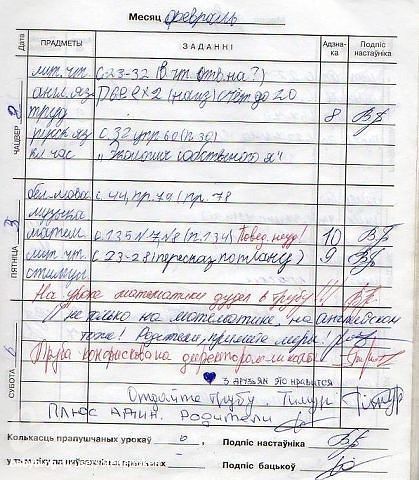 Месяц февраль
Дата ПРАДМЕТЫ ЗАДАННІ Адзна-ка Подпіс настаўніка
ЧАЦВЕР 2
лит. чт. с 23-32 (в чт. отв. на ?)
англ. яз. счёт до 20
труд 8
русск. яз с 32 упр 60
кл. час "Эколог собственного я"
ПЯТНІЦА 3
бел. мова с. 44, пр. 79, пр. 78
музыка
матем. с 135 №7,№8 (п. 134) Повед. неуд! 10
лит. чт. с 23-28 (пересказ по плану) 9
СУБОТА
На уроке математики дудел в трубу!!!
И не только на математике, на английском
тоже! Родители, примите меры.
Труба конфискована директором школы
♥ 3 друзьям это нравится
Отдайте трубу. Тимур Тимур
Плюс один. Родители
Колькасць прапушчаных урокаў Подпіс настаўніка
Подпіс бацькоў